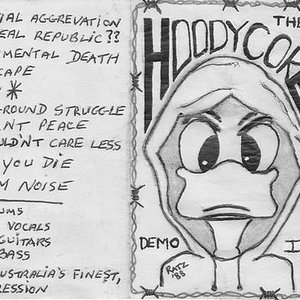 IAL AGGREVATION
EAL REPUBLIC ??
MENTAL DEATH
CAPE
*
ROUND STRUGGLE
NT PEACE
ULDN'T CARE LESS
YOU DIE
M NOISE
UMS
VOCALS
GUITARS
BASS
USTRALIA'S FINEST,
RESSION
THE
HOODYCOR
DEMO I
RATZ
'88